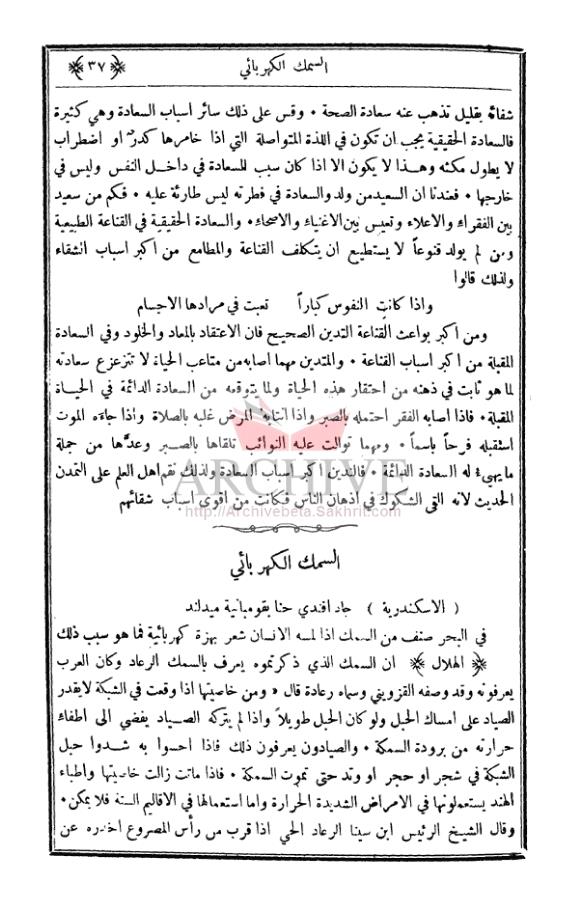 السمك الكهربائي
﴿ ٣٧ ﴾
شفائه بقليل تذهب عنه سعادة الصحة • وقس على ذلك سائر اسباب السعادة وهي كثيرة
فالسعادة الحقيقية يجب ان تكون في اللذة المتواصلة التي اذا خامرها كدر او اضطراب
لا يطول مكثه وهذا لا يكون الا اذا كان سبب للسعادة في داخل النفس وليس في
خارجها • فعندنا ان السعيد من ولد والسعادة في فطرته ليس طارئة عليه • فكم من سعيد
بين الفقراء والاعلاء وتعيس بين الاغنياء والاصحاء • والسعادة الحقيقية في القناعة الطبيعية
ومن لم يولد قنوعاً لا يستطيع ان يتكلف القناعة والمطامع من اكبر اسباب الشقاء
ولذلك قالوا
واذا كانت النفوس كباراً تعبت في مرادها الاجسام
ومن اكبر بواعث القناعة التدين الصحيح فان الاعتقاد بالمعاد والخلود وفي السعادة
المقبلة من اكبر اسباب القناعة • والمتدين مهما اصابه من متاعب الحياة لا تتزعزع سعادته
لما هو ثابت في ذهنه من احتقار هذه الحياة ولما يتوقعه من السعادة الدائمة في الحياة
المقبلة • فاذا اصابه الفقر احتمله بالصبر واذا انتابه المرض غلبه بالصلاة واذا جاءه الموت
استقبله فرحاً باسماً • ومهما توالت عليه النوائب تلقاها بالصبر وعدها من جملة
ما يهيء له السعادة الدائمة • فالتدين اكبر اسباب السعادة ولذلك نقم اهل العلم على التمدن
الحديث لانه القى الشكوك في اذهان الناس فكانت من اقوى اسباب شقائهم
ARCHIVE
http://Archivebeta.Sakhrit.com
السمك الكهربائي
( الاسكندرية ) جاد افندي حنا بقومبانية ميدلند
في البحر صنف من السمك اذا لمسه الانسان شعر بهزة كهربائية فما هو سبب ذلك
﴿ الهلال ﴾ ان السمك الذي ذكرتموه يعرف بالسمك الرعاد وكان العرب
يعرفونه وقد وصفه القزويني وسماه رعادة قال « ومن خاصيتها اذا وقعت في الشبكة لا يقدر
الصياد على امساك الحبل ولو كان الحبل طويلاً واذا لم يتركه الصياد يفضي الى اطفاء
حرارته من برودة السمكة • والصيادون يعرفون ذلك فاذا احسوا به شدوا حبل
الشبكة في شجر او حجر او وتد حتى تموت السمكة • فاذا ماتت زالت خاصيتها واطباء
الهند يستعملونها في الامراض الشديدة الحرارة واما استعمالها في الاقاليم الستة فلا يمكن •
وقال الشيخ الرئيس ابن سينا الرعاد الحي اذا قرب من رأس المصروع اخدره عن